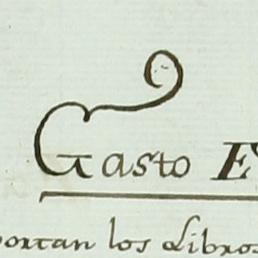 Gasto E
portan los Libros